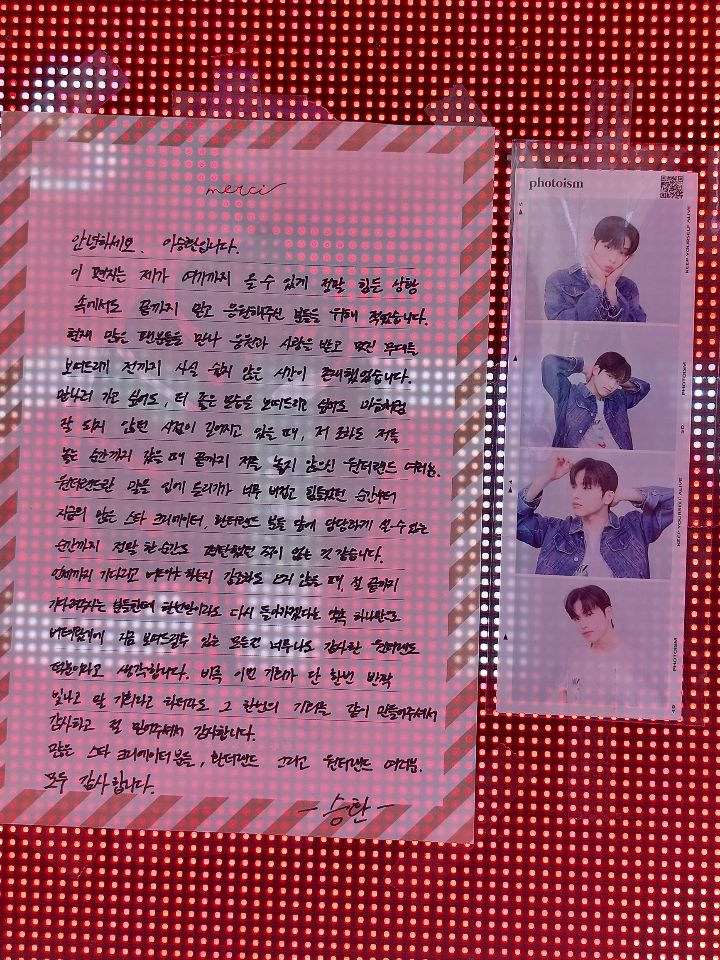 merci
안녕하세요. 이승환입니다.
이 편지는 제가 여기까지 올 수 있게 정말 힘든 상황
속에서도 끝까지 믿고 응원해주신 분들을 위해 적었습니다.
현재 많은 팬분들을 만나 응원과 사랑을 받고 멋진 무대를
보여드리기 전까지 사실 쉽지 않은 시간이 존재했었습니다.
만나러 가고 싶어도, 더 좋은 모습을 보여드리고 싶어도 마음처럼
잘 되지 않던 시절이 길어지고 있을 때, 저 조차도 저를
놓는 순간까지 갔을 때 끝까지 저를 놓지 않으신 원더랜드 여러분.
원더랜드란 말을 입에 올리기가 너무 버겁고 힘들었던 순간부터
지금의 많은 스타 크리에이터, 환더랜드 분들 앞에 당당하게 설 수 있는
순간까지 정말 한순간도 편했었던 적이 없는 것 같습니다.
언제까지 기다리고 버텨야 하는지 감조차도 오지 않을 때, 절 끝까지
기다려주시는 분들한테 한번만이라도 다시 돌아가겠다는 약속 하나만으로
버텨왔기에 지금 보여드릴수 있는 모든건 너무나도 감사한 원더랜드
덕분이라고 생각합니다. 비록 이번 기회가 단 한번 반짝
빛나고 말 기회라고 하더라도 그 한번의 기회를 같이 만들어주셔서
감사하고 절 믿어주셔서 감사합니다.
많은 스타 크리에이터분들, 환더랜드 그리고 원더랜드 여러분.
모두 감사합니다.
- 승환 -
photoism
KEEP YOURSELF ALIVE
PHOTOISM
KEEP YOURSELF ALIVE
PHOTOISM